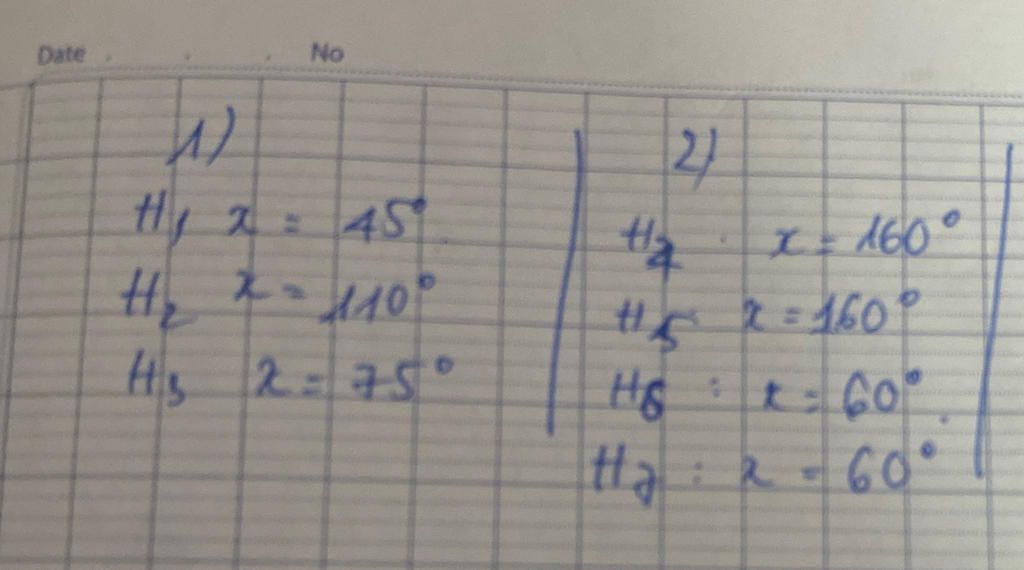 Date . . . No
1)
H1 x = 45°
H2 x = 110°
H3 x = 75°
2)
H4 . x = 160°
H5 x = 160°
H6 : x = 60°.
H7 : x = 60°